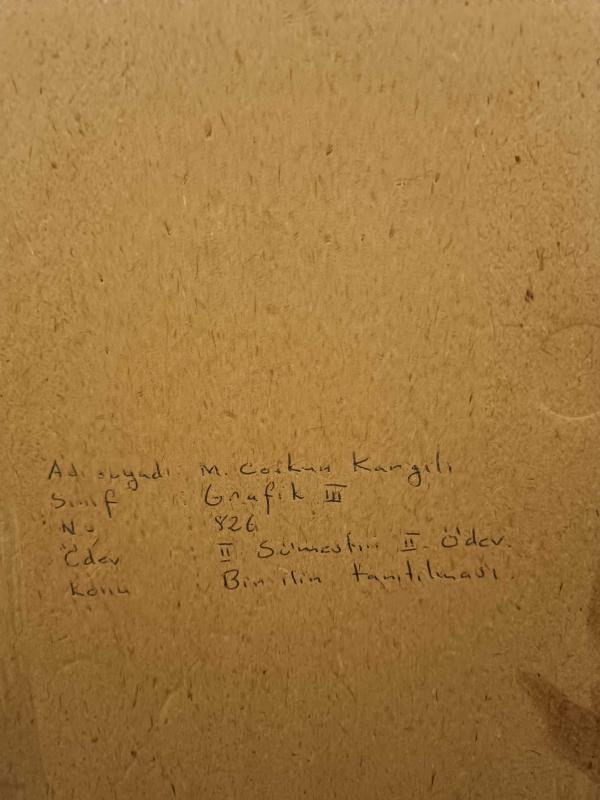 Adı soyadı : M. Coşkun Kargılı
Sınıf : Grafik III
No : 826
Ödev : II Sömestir II. Ödev.
Konu : Bir ilin tanıtılması.